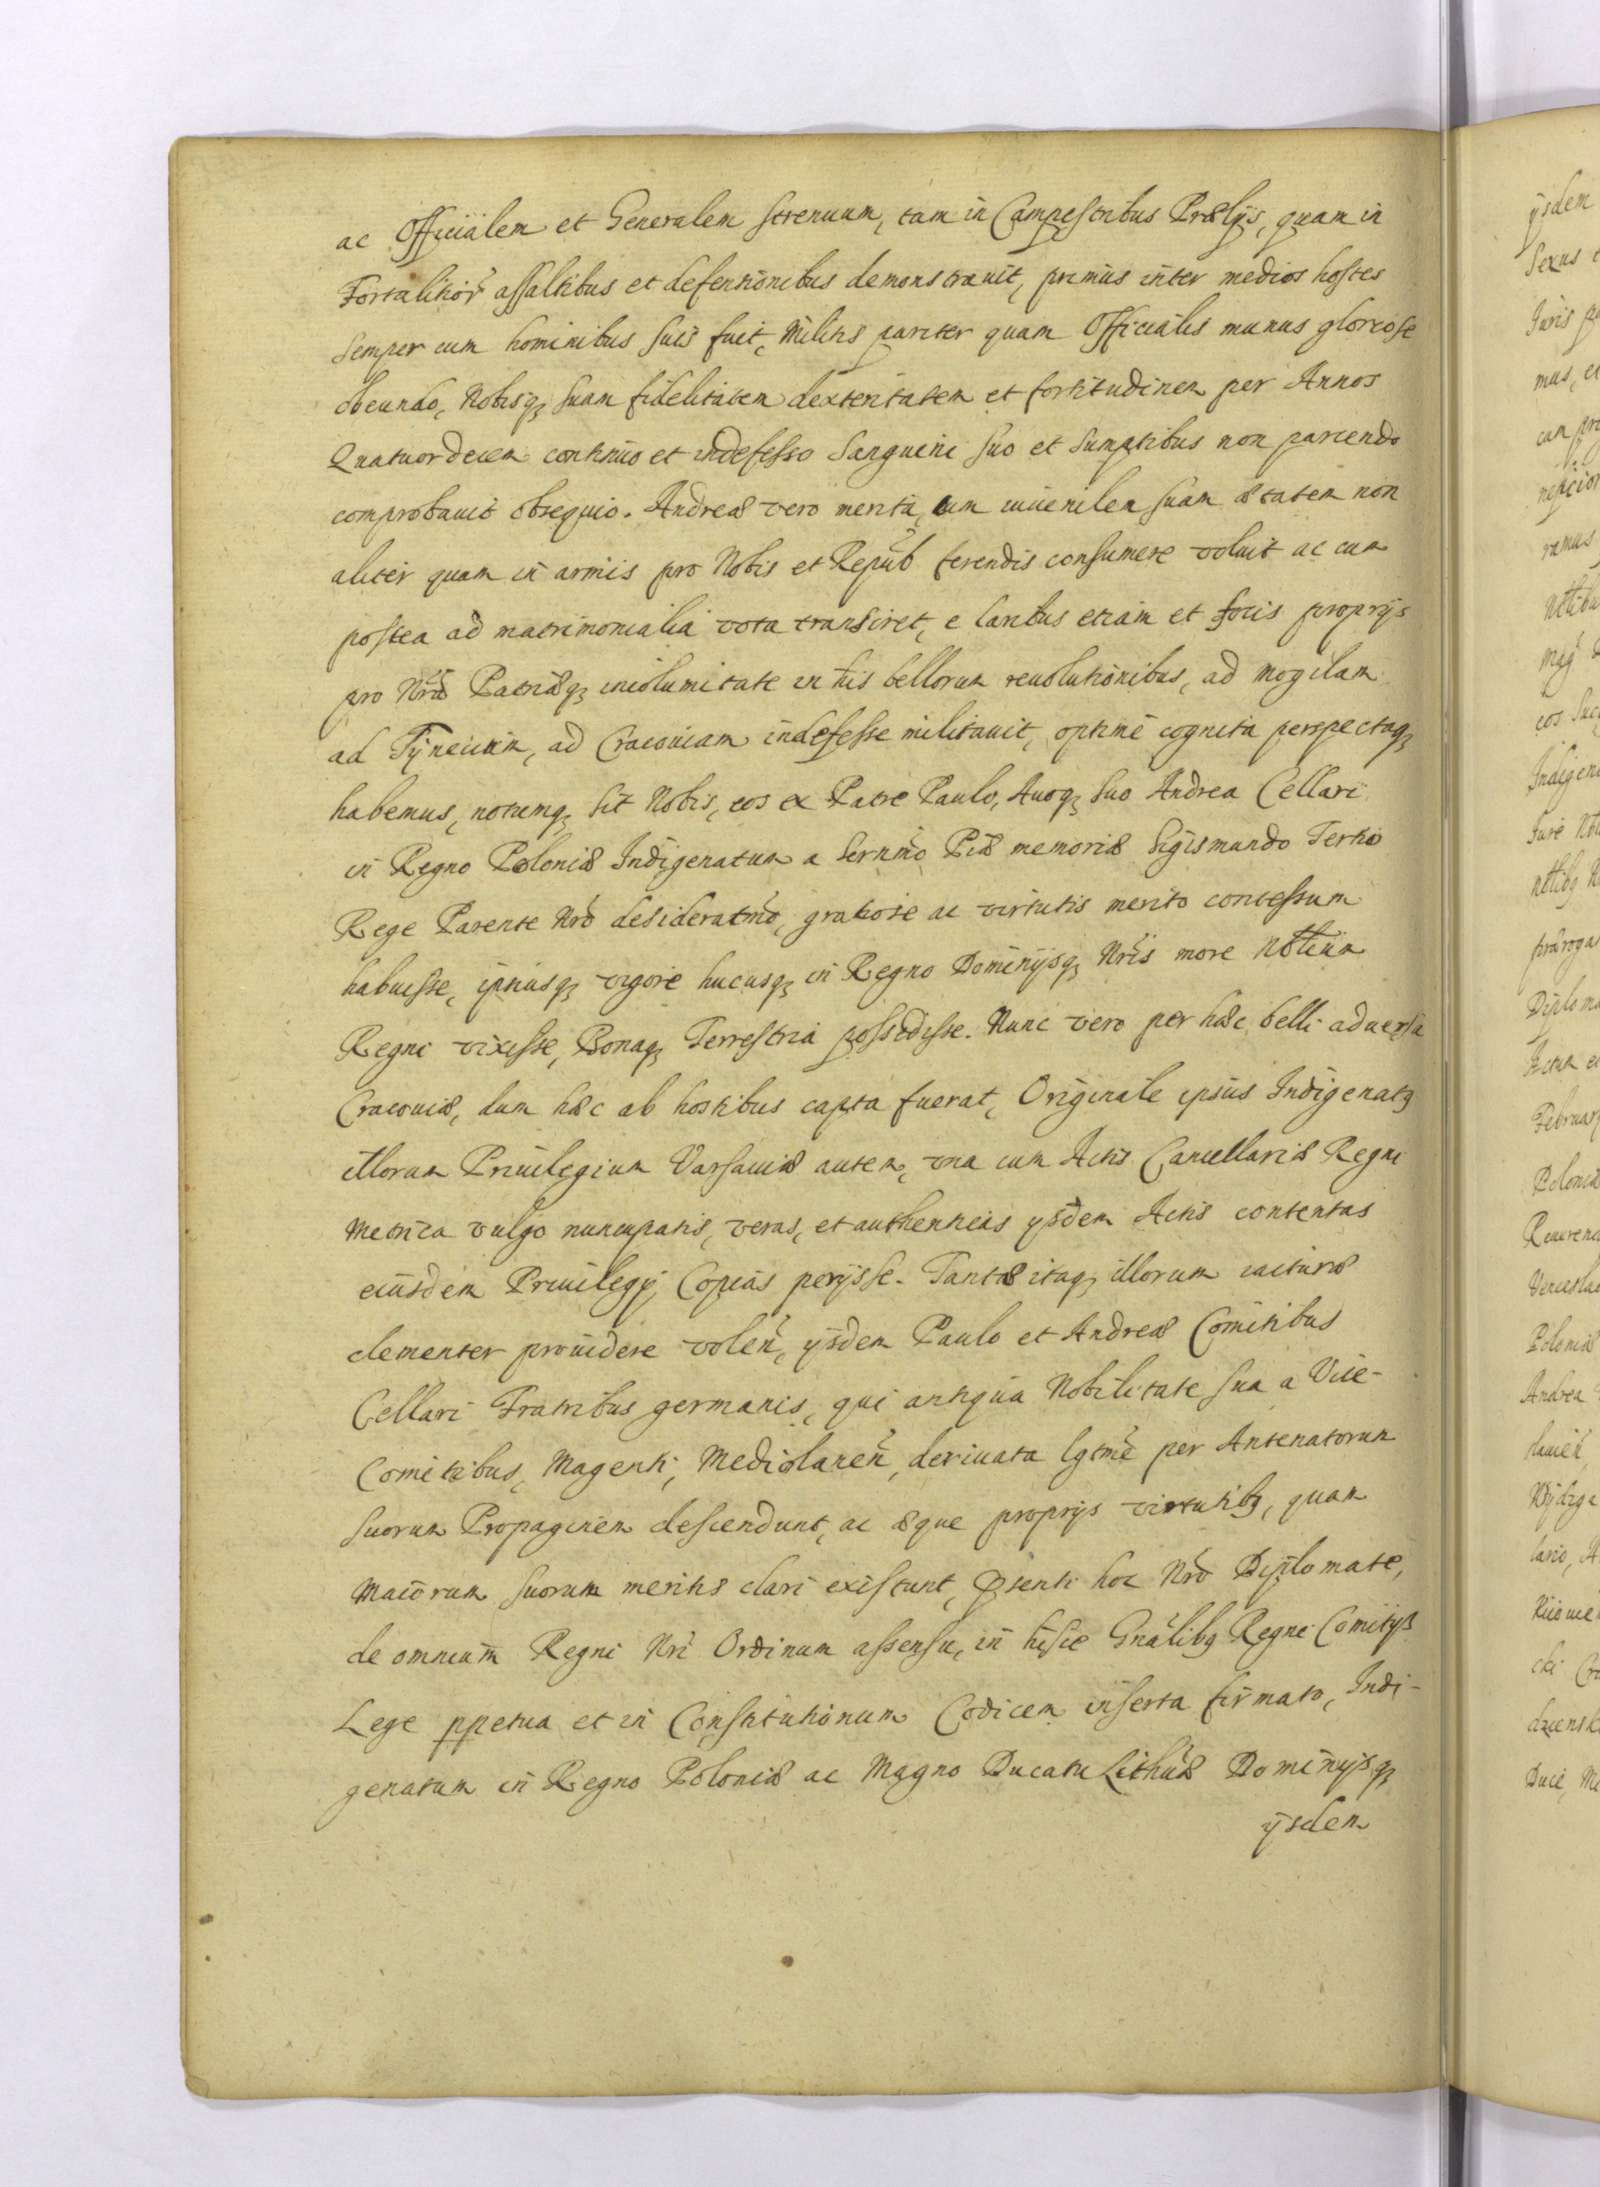 ac Officialem et Generalem strenuum, tam in Campestribus Prælijs, quam in
Fortalitior̃ assaltibus et defensionibus demonstrauit, primus inter medios hostes
semper cum hominibus suis fuit, Militis pariter quam Officialis munus gloriose
obeundo, Nobisq; suam fidelitatem dexteritatem et fortitudinem per Annos
Quatuordecem continuo et indefesso Sanguini suo et sumptibus non parcendo
comprobauit obsequio. Andreæ vero merita, cum iuuenilem suam ætatem non
aliter quam in armis pro Nobis et Repub̃ ferendis consumere voluit ac cum
postea ad matrimonialia vota transiret, e laribus etiam et focis proprijs
pro Nr̃a Patriæq; incolumitate in his bellorum reuolutionibus, ad Mogilam
ad Tyneciũm, ad Cracouiam indefesse militauit, optime cognita perspectaq;
habemus, notumq; sit Nobis, eos ex Patre Paulo, Auoq; suo Andrea Cellari
in Regno Poloniæ Indigenatum a Sernm̃o Piæ memoriæ Sigismundo Tertio
Rege Parente Nr̃o desideratm̃o, gratiose ac virtutis merito concessum
habuisse, ipsiusq; vigore hucusq; in Regno Dominijsq; Nr̃is more Nobilium
Regni vixisse, Bonaq; Terrestria possedisse. Nunc vero per hæc belli aduersa
Cracouiæ, dum hæc ab hostibus capta fuerat, Originale ipsius Indigenatq
illorum Priuilegium Varsauiæ autem, una cum Actis Cancellariæ Regni
Metrica vulgo nuncupatis, veras, et authenticas ijsdem Actis contentas
eiusdem Priuilegij Copias perijsse. Tantæ itaq; illorum iacturæ
clementer prouidere volen̄, ijsdem Paulo et Andreæ Comitibus
Cellari Fratribus germanis, qui antiqua Nobilitate sua a Vice-
Comitibus, Magenti, Mediolanen̄, deriuata lgtm̃e per Antenatorum
suorum Propaginem descendunt, ac æque proprijs virtutibq, quam
Maiorum suorum meritis clari existunt, Pr̃senti hoc Nr̃o Diplomate,
de omnium Regni Nr̃i Ordinum assensu, in hisce Gnãlibq Regni Comitijs
Lege ppetua et in Constitutionum Codicem inserta firmato, Indi-
genatum in Regno Poloniæ ac Magno Ducatu Lithũæ Dominijsq;
ijsdem